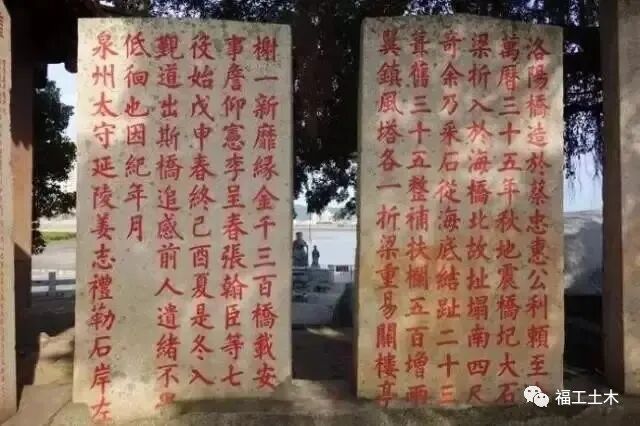 洛陽橋造於蔡忠惠公利賴至
萬曆三十五年秋地震橋圮大石
梁折入於海橋北故址塌南四尺
奇余乃采石從海底結趾二十三
葺舊三十五整補扶欄五百增兩
翼鎮風塔各一折梁重易關樓亭
榭一新靡緣金千三百橋載安
事詹仰憲李呈春張翰臣等七
役始戊申春終己酉夏是冬入
覲道出斯橋追感前人遺緒不
低徊也因紀年月
泉州太守延陵姜志禮勒石岸左
福工土木